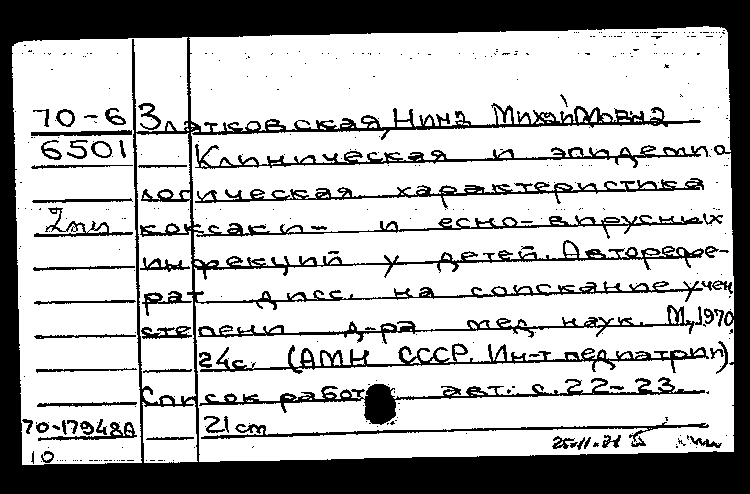 70-6 Златковская, Нина Михайловна
6501 Клиническая и эпидемио
логическая характеристика
коксаки- и есно-вирусных
инфекций у детей. Авторефе-
рат дисс. на соискание учен
степени д-ра мед. наук. М., 1970
24с. (АМН СССР. Ин-т педиатрии).
Список работ авт.: с. 22-23.
70-17948а 21 cm
10